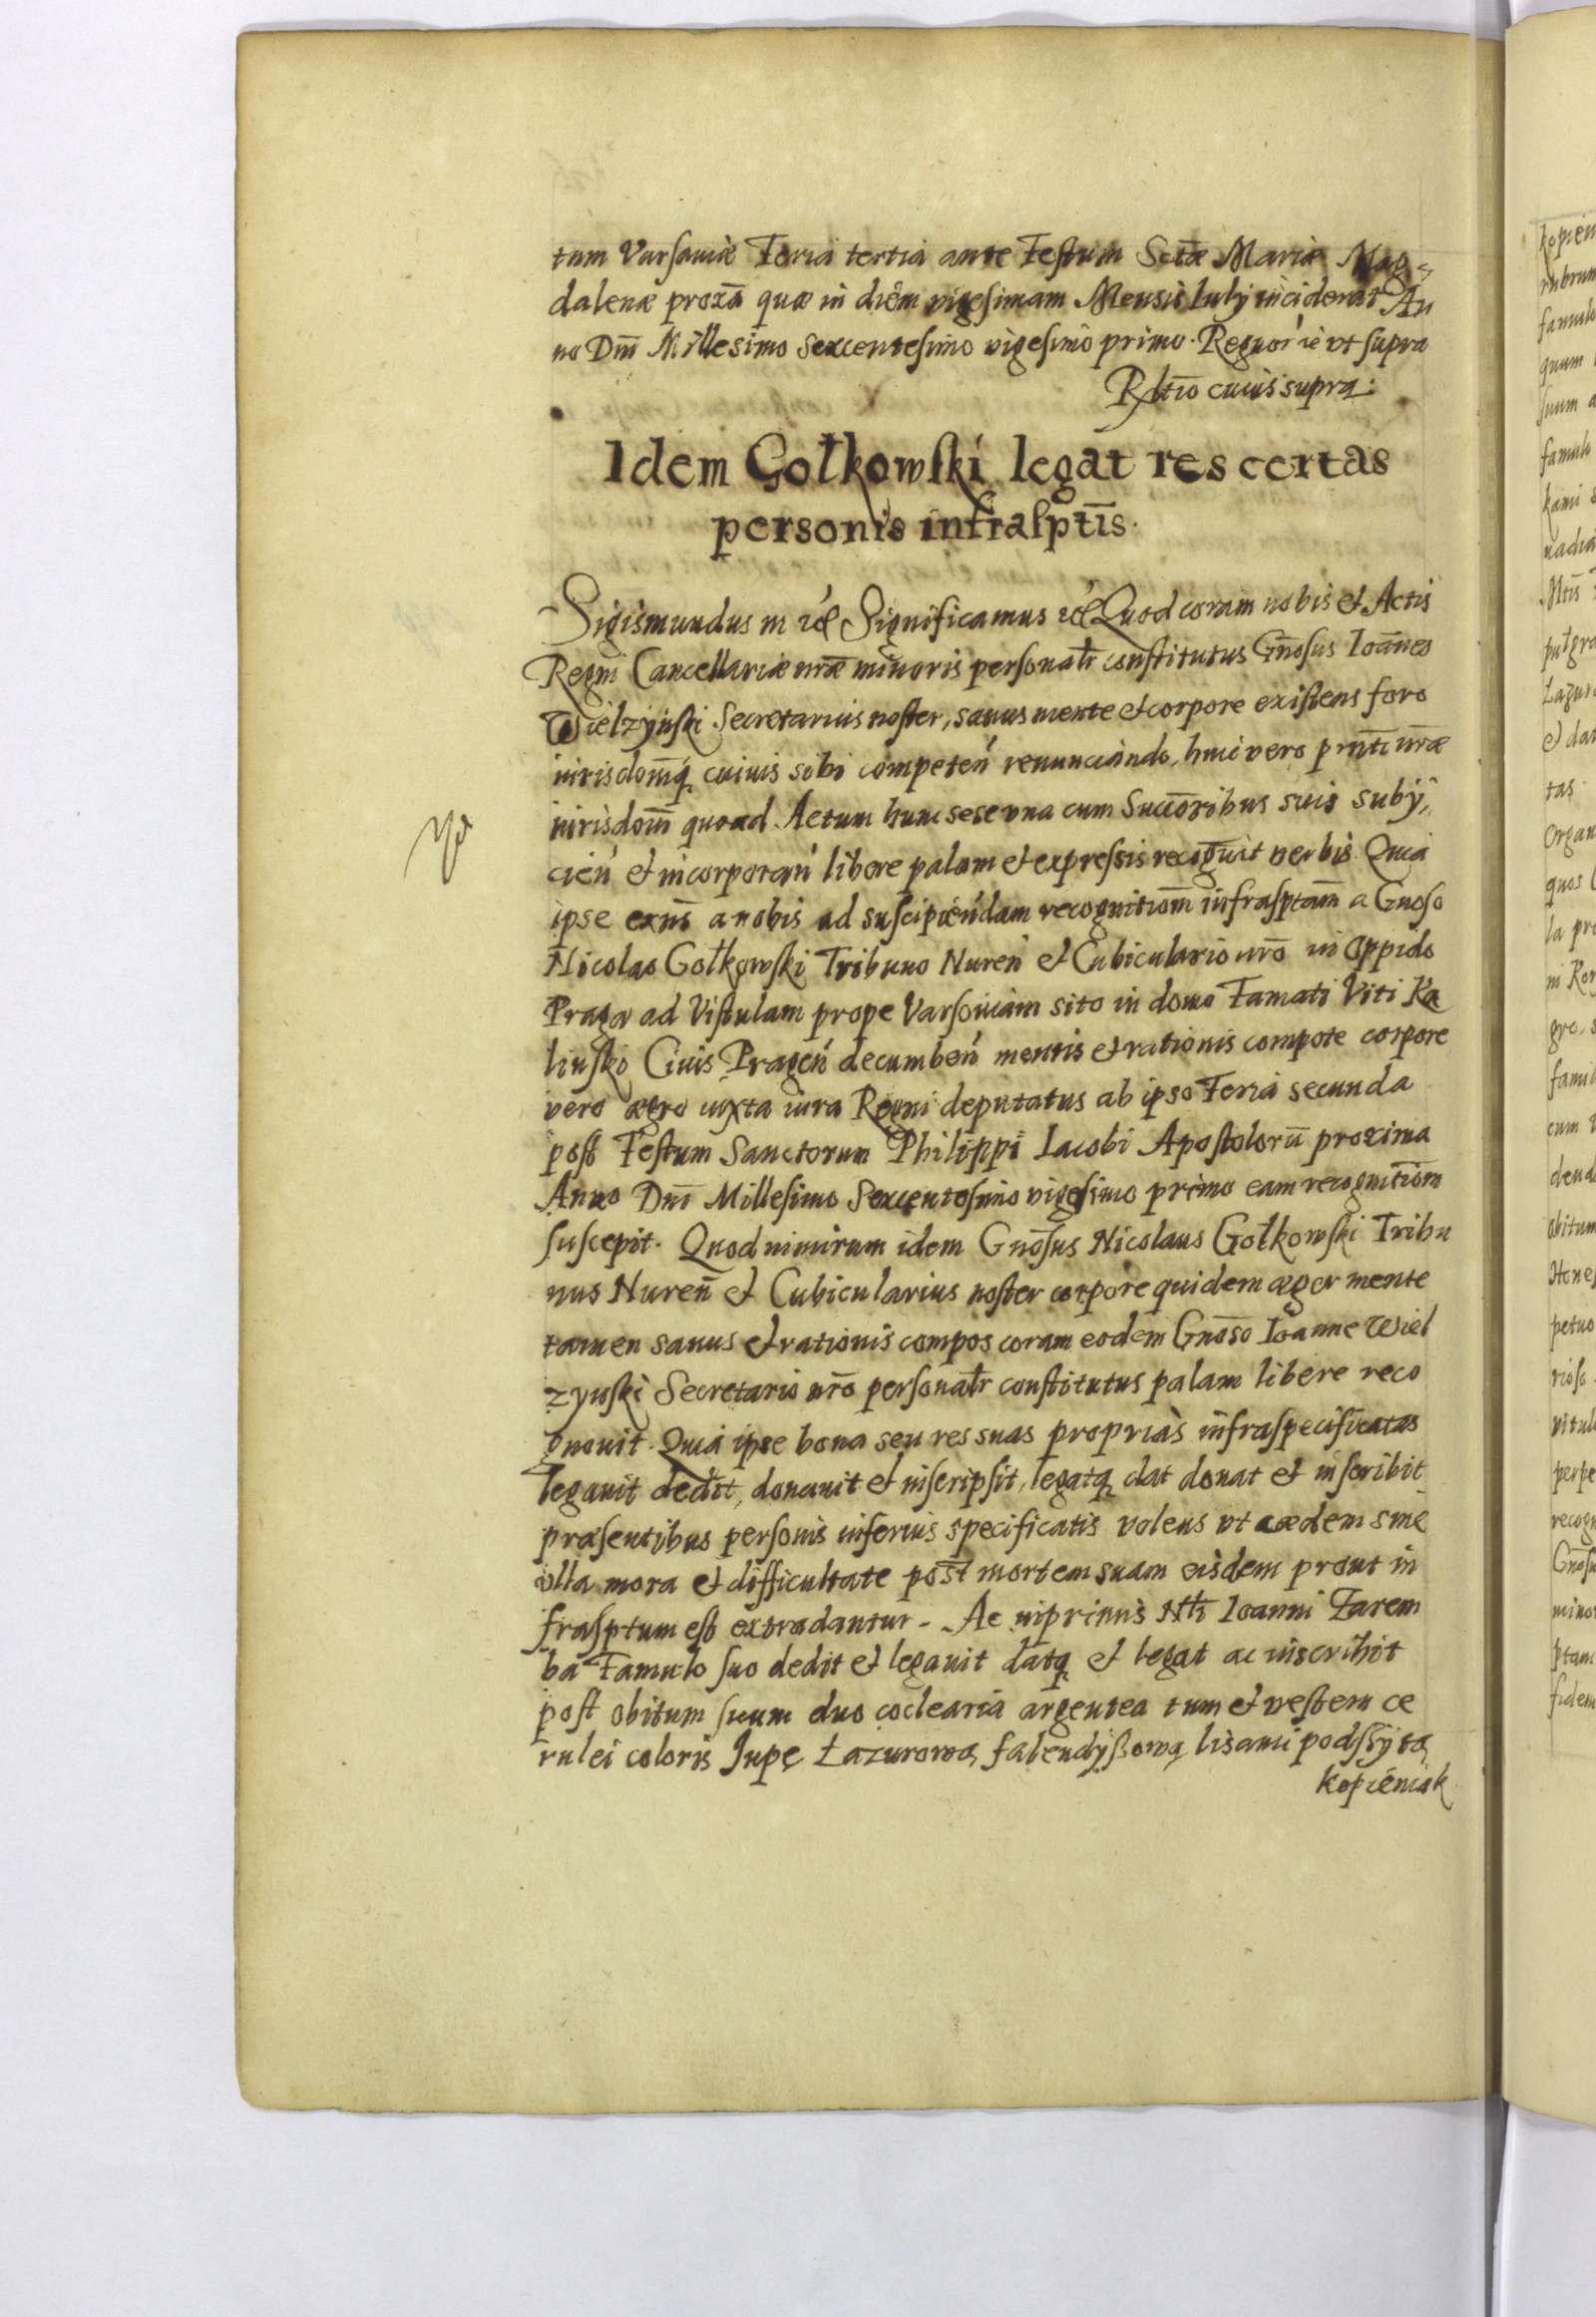 tum Varsauiæ Feria tertia ante Festum Sctæ Mariæ Mag=
dalenæ proxā quæ in diem vigesimam Mensis Iulij inciderat An
no Dnī Millesimo Sexcentesimo vigesimo primo. Regnor ut supra
Rltio cuius supra:
Idem Gołkowski legat res certas
personis infrasptīs.
Sigismundus III etc Significamus etc Quod coram nobis et Actis
Regni Cancellariæ nræ minoris personalr constitutus Gnosus Ioānnes
Wielzyński Secretarius noster, sanus mente et corpore existens foro
iurisdomq cuiuis sibi competen renunciando, huic vero prnti nræ
iurisdoni quoad Actum hunc sese una cum Succoribus suis subij,,
cien et incorporan libere palam et expressis recognuit verbis. Quia
ipse exns a nobis ad suscipiendam recognitiom infrasptam a Gnoso
Nicolao Gołkowski Tribuno Nuren et Cubiculario nro in oppido
Praga ad Vistulam prope Varsouiam sito in domo Famati Viti Ka
linsko Ciuis Pragen decumben mentis et rationis compote corpore
vero ægro iuxta iura Regni deputatus ab ipso Feria secunda
post Festum Sanctorum Philippi Iacobi Apostolorū proxima
Anno Dnī Millesimo Sexcentesimo vigesimo primo eam recognitiom
suscepit. Quod nimirum idem Gnosus Nicolaus Gołkowski Tribu
nus Nuren et Cubicularius noster corpore quidem æger mente
tamen sanus et rationis compos coram eodem Gnoso Ioanne Wiel
zynski Secretario nro personalr constitutus palam libere reco
gnouit. Quia ipse bona seu res suas proprias infraspecificatas
legauit dedit, donauit et inscripsit, legatq dat donat et inscribit
præsentibus personis inferius specificatis volens ut eædem sine
ulla mora et difficultate post mortem suam eisdem prout in
frasptum est extradantur. Ac inprimis Nli Ioanni Zarem
ba Famulo suo dedit et legauit datq et legat ac inscribit
post obitum suum duo coclearia argentea tum et vestem ce
rulei coloris Jupę Łazurową falendyszową lisami podszytą
kopieniak